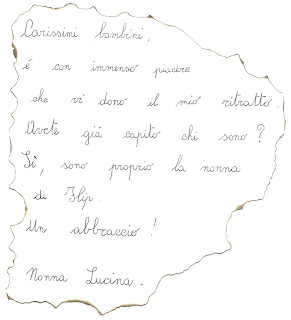 Carissimi bambini,
é con immenso piacere
che vi dono il mio ritratto.
Avete giá capito chi sono?
Sì, sono proprio la nonna
di Flip.
Un abbraccio!
Nonna Lucina.